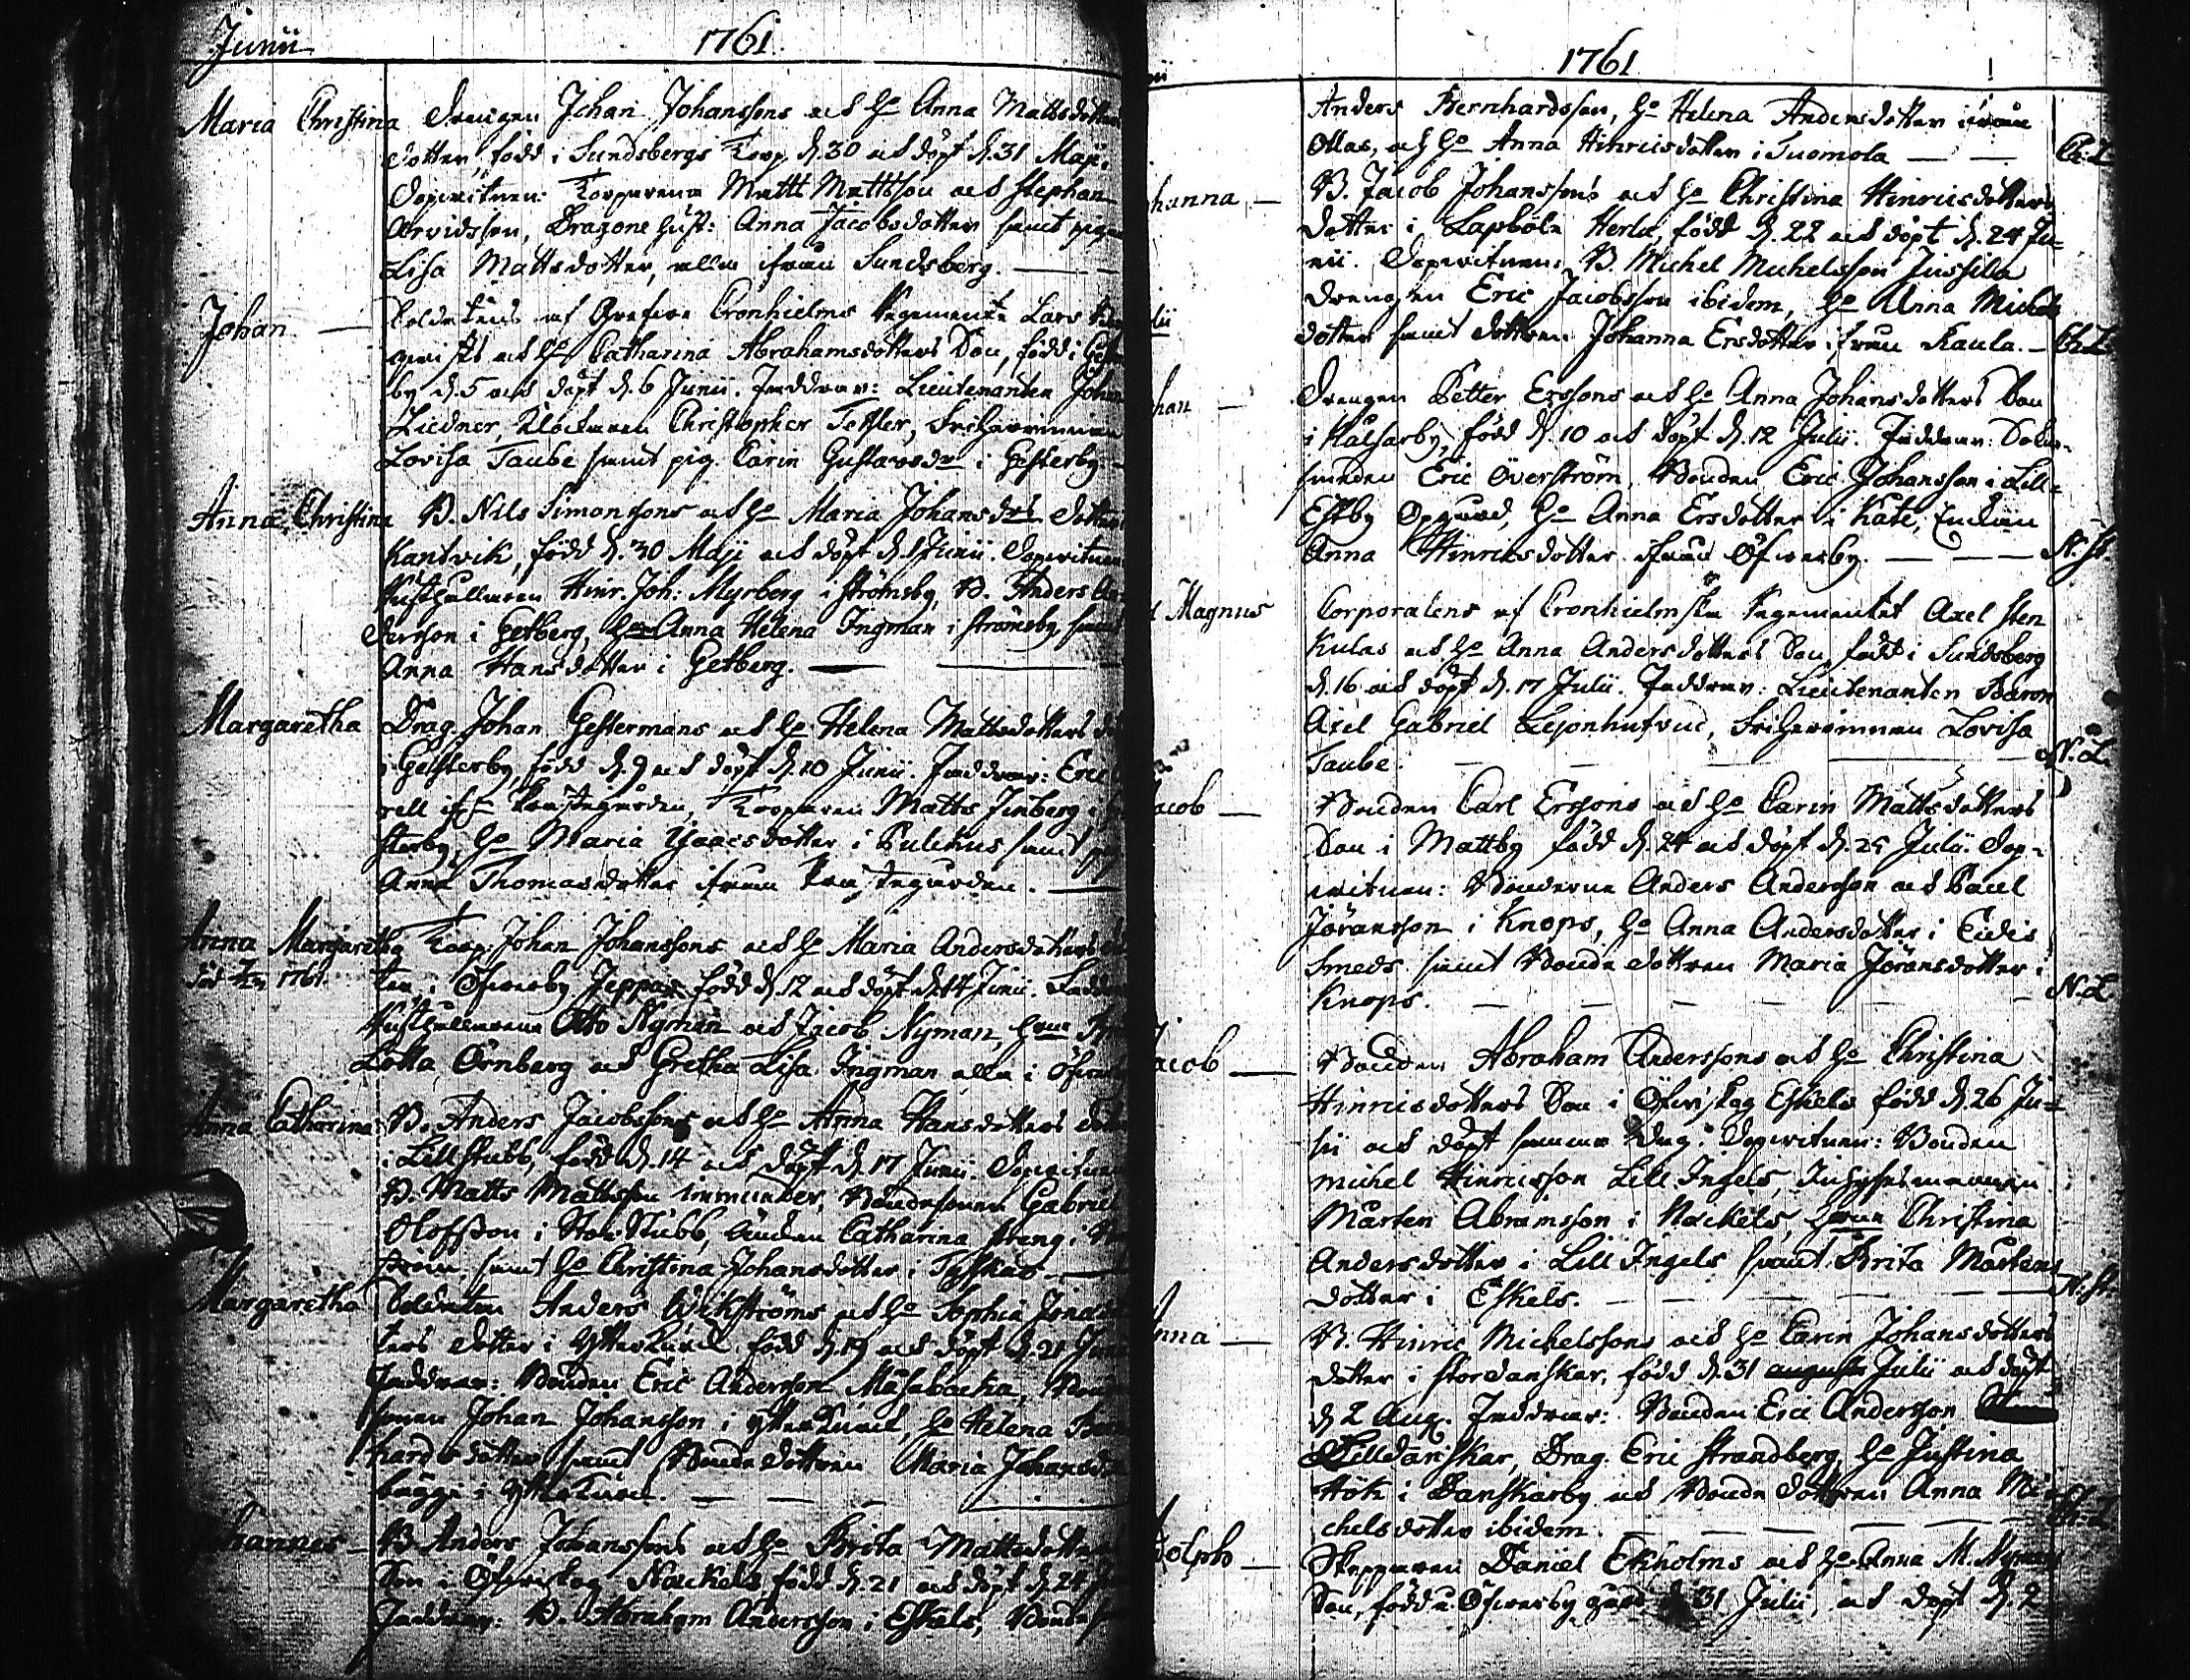 Junii 1761
Maria Christina Drengen Johan Johanssons och h° Anna Mattsdotters
dotter, född i Sundsbergs Torp d. 30 och döpt d. 31 Maji.
Dopwitnen: Torparena Matt Mattsson och Stephan
Arvidsson, Dragone hust: Anna Jacobsdotter samt pigan
Lisa Mattsdotter, alla ifrån Sundsberg.
Johan Soldatens af Grefve Cronhielms Regemente Lars
qvists och h° Catharina Abrahamsdotters Son, född i
by d. 5 och döpt d. 6 Junii. Faddrar: Lieutenanten Johan
Liedner, Klockaren Christopher Tessler, Friherrinnan
Lovisa Taube samt pig. Carin Gustavsdr i Gesterby
Anna Christina B. Nils Simonssons och h° Maria Johansdrs dotter
Kantvik, född d. 30 Maji och döpt d. 1 Junii. Dopwitnen
Rusthållaren Hinr. Joh: Myrberg i Strömsby, B. Anders
dersson i Getberg, Anna Helena Ingman i Strömsby, samt
Anna Hansdotter i Getberg.
Margaretha Drag. Johan Gestermans och h° Helena Mattsdotters
i Gesterby född d. 9 och döpt d. 10 Junii. Faddrar: Eric
Torparen Matts Finberg i
sterby, h° Maria Isaacsdotter i samt pig
Anna Thomasdotter ifrån Prästegården.
Anna Margaretha Torp: Johan Johanssons och h° Maria Andersdotters
1761. ter, i Öfwerby Jeppas född d. 12 och döpt d. 14 Junii. Faddrar
Rusthållarena Otto Nyman och Jacob Nyman,
Lotta Örnberg och Gretha Lisa Ingman alla i
Anna Catharina B. Anders Jacobssons och h° Anna Hansdotters
i Lillstubb, född d. 14 och döpt d. 17 Junii. Dopwitnen
B. Matts Mattsson Bondesonen Gabriel
Olofsson i Stor Stubb, Änkan Catharina Streng i
ström, samt h° Christina Johansdotter i
Margaretha Soldaten Anders Wikströms och h° Sophia
ters dotter i Ytterkurck född d. 19 och döpt d. 21 Junii
Faddrar: Bonden Eric Andersson Måsabacka, Bonde
sonen Johan Johansson i Ytterkurck, h° Helena
hardsdotter samt Bonde dottren Maria Johansdr
bägge i Ytterkurck.
Johannes B. Anders Johanssons och h° Brita Mattsdotters
Son i Öfwerskog Nackels, född d. 21 och döpt d. 24
Faddrar: B. Abraham Andersson i Eskels, Bonde
1761
Anders Bernhardsson, h° Helena Andersdotter ifrån
Ollas, och h° Anna Hinricsdotter i Tuomola
hanna B. Jacob Johanssons och h° Christina Hinricsdotters
dotter i Lapböle Herla, född d. 22 och döpt d. 24 Ju=
nii. Dopwitnen: B. Michel Michelsson Jussila
drengen Eric Jacobsson ibidem, h° Anna Michels
dotter samt dottren Johanna Ersdotter ifrån Kaula.
han Drengen Petter Erssons och h° Anna Johansdotters Son
i Kålsarby, född d. 10 och döpt d. 12 Julii. Faddrar:
smeden Eric Öwerström, Bonden Eric Johansson i Lill=
Estby Opgård, h° Anna Ersdotter i Kåte, Enkan
Anna Hinricsdotter ifrån Öfwerby. N. St.
Magnus Corporalens af Cronhielmska Regementet Axel Sten
Kulas och h° Anna Andersdotters Son född i Sundsberg
d. 16 och döpt d. 17 Julii. Faddrar: Lieutenanten Baron
Axel Gabriel Lejonhufvud, Friherrinnan Lovisa
Taube. N. L.
Jacob Bonden Carl Erssons och h° Carin Mattsdotters
Son i Mattby född d. 24 och döpt d. 25 Julii. Dop=
witnen: Bönderna Anders Andersson och Paul
Jöransson i Knops, h° Anna Andersdotter i Eidis
Smeds samt Bonde dottren Maria Jöransdotter i
Knops. N. L.
Jacob Bonden Abraham Anderssons och h° Christina
Hinricsdotters Son i Öfwerskog Eskels född d. 26 Ju=
lii och döpt samma dag. Dopwitnen: Bonden
Michel Hinricsson Lill Ingels, Inhysesmannen
Mårten Abramsson i Nackels, Christina
Andersdotter i Lill Ingels samt Brita Mårtens
dotter i Eskels. N. St.
Anna B. Hinric Michelssons och h° Carin Johansdotters
dotter i Stordanskar, född d. 31 Julii och döpt
d. 2 Aug. Faddrar: Bonden Eric Andersson
Lilldanskar, Drag: Eric Strandberg, h° Justina
Hök i Danskarby och Bonde dottren Anna Mi=
chelsdotter ibidem.
dolph Skepparen Daniel Ekholms och h° Anna M. Nymans
Son, född i Öfwerby gård d. 31 Julii, och döpt d. 2